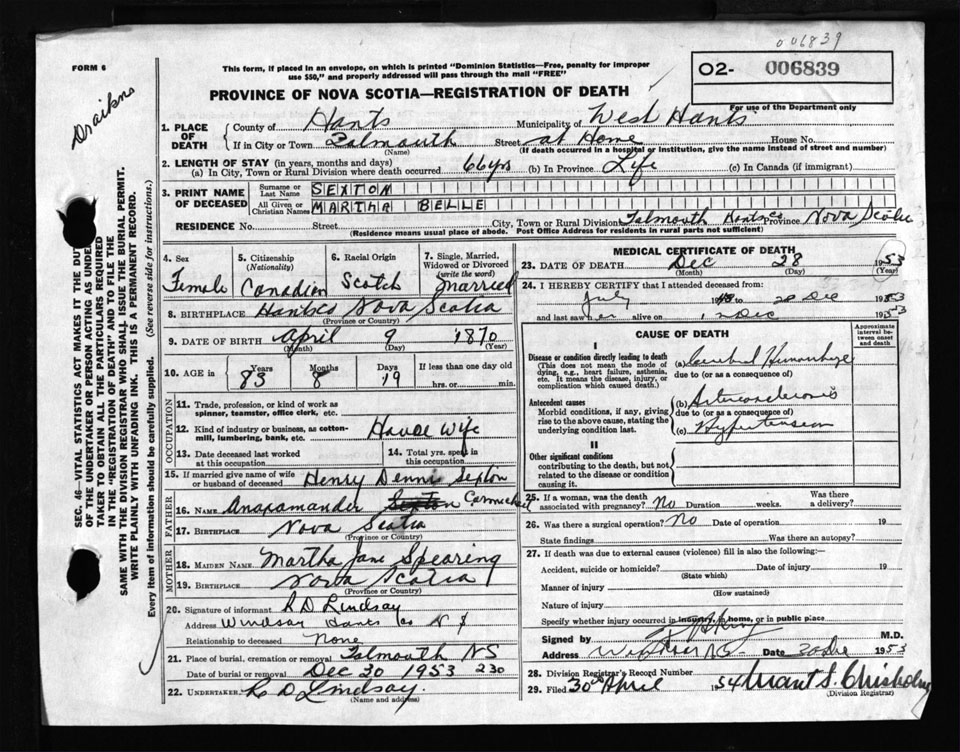 006839
FORM 6
This form, if placed in an envelope, on which is printed "Dominion Statistics—Free, penalty for improper
use $50," and properly addressed will pass through the mail "FREE"
02- 006839
PROVINCE OF NOVA SCOTIA—REGISTRATION OF DEATH
For use of the Department only
Draikns
SEC. 46—VITAL STATISTICS ACT MAKES IT THE DUTY
OF THE UNDERTAKER OR PERSON ACTING AS UNDER
TAKER TO OBTAIN ALL THE PARTICULARS REQUIRED
IN THE "REGISTRATION OF DEATH" AND TO FILE THE
SAME WITH THE DIVISION REGISTRAR WHO SHALL ISSUE THE BURIAL PERMIT.
WRITE PLAINLY WITH UNFADING INK. THIS IS A PERMANENT RECORD.
Every item of information should be carefully supplied. (See reverse side for instructions.)
1. PLACE OF DEATH { County of Hants Municipality of West Hants
If in City or Town Falmouth Street at Home House No.
(Name) (If death occurred in a hospital or institution, give the name instead of street and number)
2. LENGTH OF STAY (in years, months and days)
(a) In City, Town or Rural Division where death occurred 66 yrs (b) In Province Life (c) In Canada (if immigrant)
3. PRINT NAME OF DECEASED { Surname or Last Name SEXTON
All Given or Christian Names MARTHA BELLE
RESIDENCE No. Street City, Town or Rural Division Falmouth Hants Co Province Nova Scotia
(Residence means usual place of abode. Post Office Address for residents in rural parts not sufficient)
4. Sex
Female
5. Citizenship
(Nationality)
Canadian
6. Racial Origin
Scotch
7. Single, Married,
Widowed or Divorced
(write the word)
Married
8. BIRTHPLACE Hants Co Nova Scotia
(Province or Country)
9. DATE OF BIRTH April 9 1870
(Month) (Day) (Year)
10. AGE in Years Months Days If less than one day old
83 8 19 hrs. or min.
OCCUPATION
11. Trade, profession, or kind of work as
spinner, teamster, office clerk, etc.
12. Kind of industry or business, as cotton-
mill, lumbering, bank, etc. House wife
13. Date deceased last worked
at this occupation
14. Total yrs. spent in
this occupation
15. If married give name of wife
or husband of deceased Henry Dennis Sexton
FATHER
16. Name Anaxamander Sexton Carmichael
17. Birthplace Nova Scotia
(Province or Country)
MOTHER
18. Maiden Name Martha Jane Spearing
19. Birthplace Nova Scotia
(Province or Country)
20. Signature of informant R D Lindsay
Address Windsor Hants Co N S
Relationship to deceased None
21. Place of burial, cremation or removal Falmouth NS
Date of burial or removal Dec 30 1953 230
22. Undertaker R D Lindsay.
(Name and address)
MEDICAL CERTIFICATE OF DEATH
23. DATE OF DEATH Dec 28 1953
(Month) (Day) (Year)
24. I HEREBY CERTIFY that I attended deceased from:
July to 28 Dec 1953
and last saw her alive on Dec 1953
CAUSE OF DEATH
Approximate
interval be-
tween onset
and death
I
Disease or condition directly leading to death
(This does not mean the mode of
dying, e.g., heart failure, asthenia,
etc. It means the disease, injury, or
complication which caused death.)
(a) Cerebral Hemorrhage
due to (or as a consequence of)
Antecedent causes
Morbid conditions, if any, giving
rise to the above cause, stating the
underlying condition last.
(b) Arteriosclerosis
due to (or as a consequence of)
(c) Hypertension
II
Other significant conditions
contributing to the death, but not
related to the disease or condition
causing it.
25. If a woman, was the death
associated with pregnancy? No Duration weeks. Was there
a delivery?
26. Was there a surgical operation? No Date of operation 19
State findings Was there an autopsy?
27. If death was due to external causes (violence) fill in also the following:—
Accident, suicide or homicide? Date of injury 19
(State which)
Manner of injury
(How sustained)
Nature of injury
Specify whether injury occurred in industry, in home, or in public place
Signed by M.D.
Address Windsor NS Date 30 Dec 1953
28. Division Registrar's Record Number
29. Filed 30th April 1954 Stuart S. Chisholm
(Division Registrar)